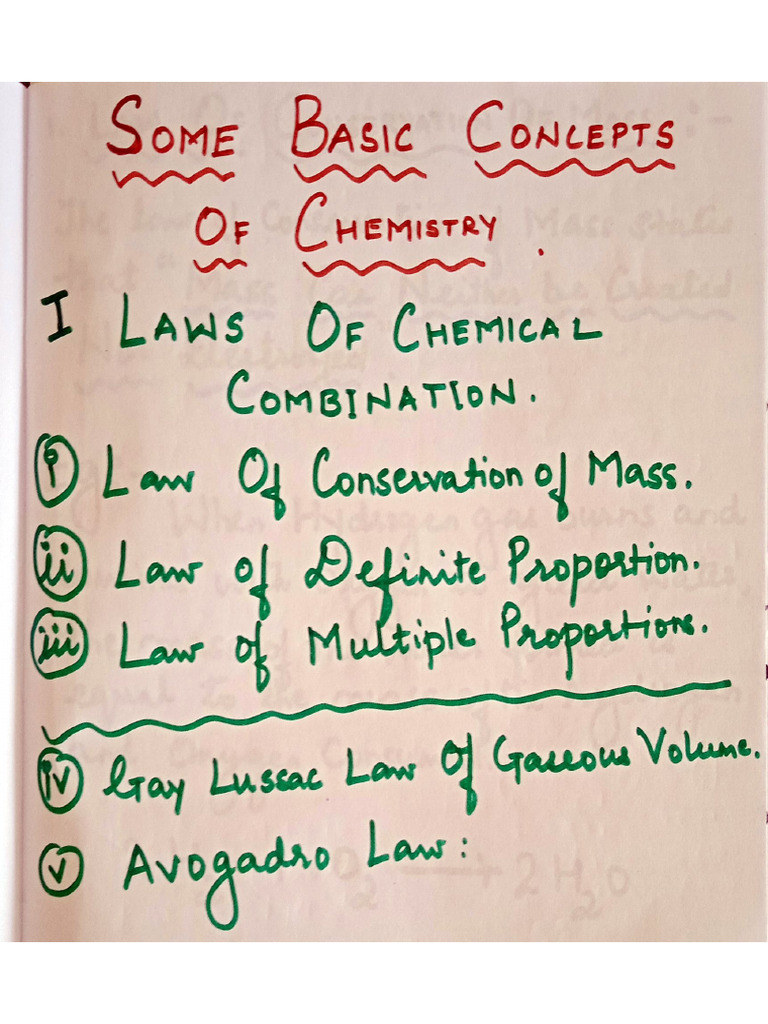 SOME BASIC CONCEPTS
OF CHEMISTRY.
I LAWS OF CHEMICAL
COMBINATION.
i Law Of Conservation of Mass.
ii Law of Definite Proportion.
iii Law of Multiple Proportions.
iv Gay Lussac Law Of Gaseous Volume.
v Avogadro Law: